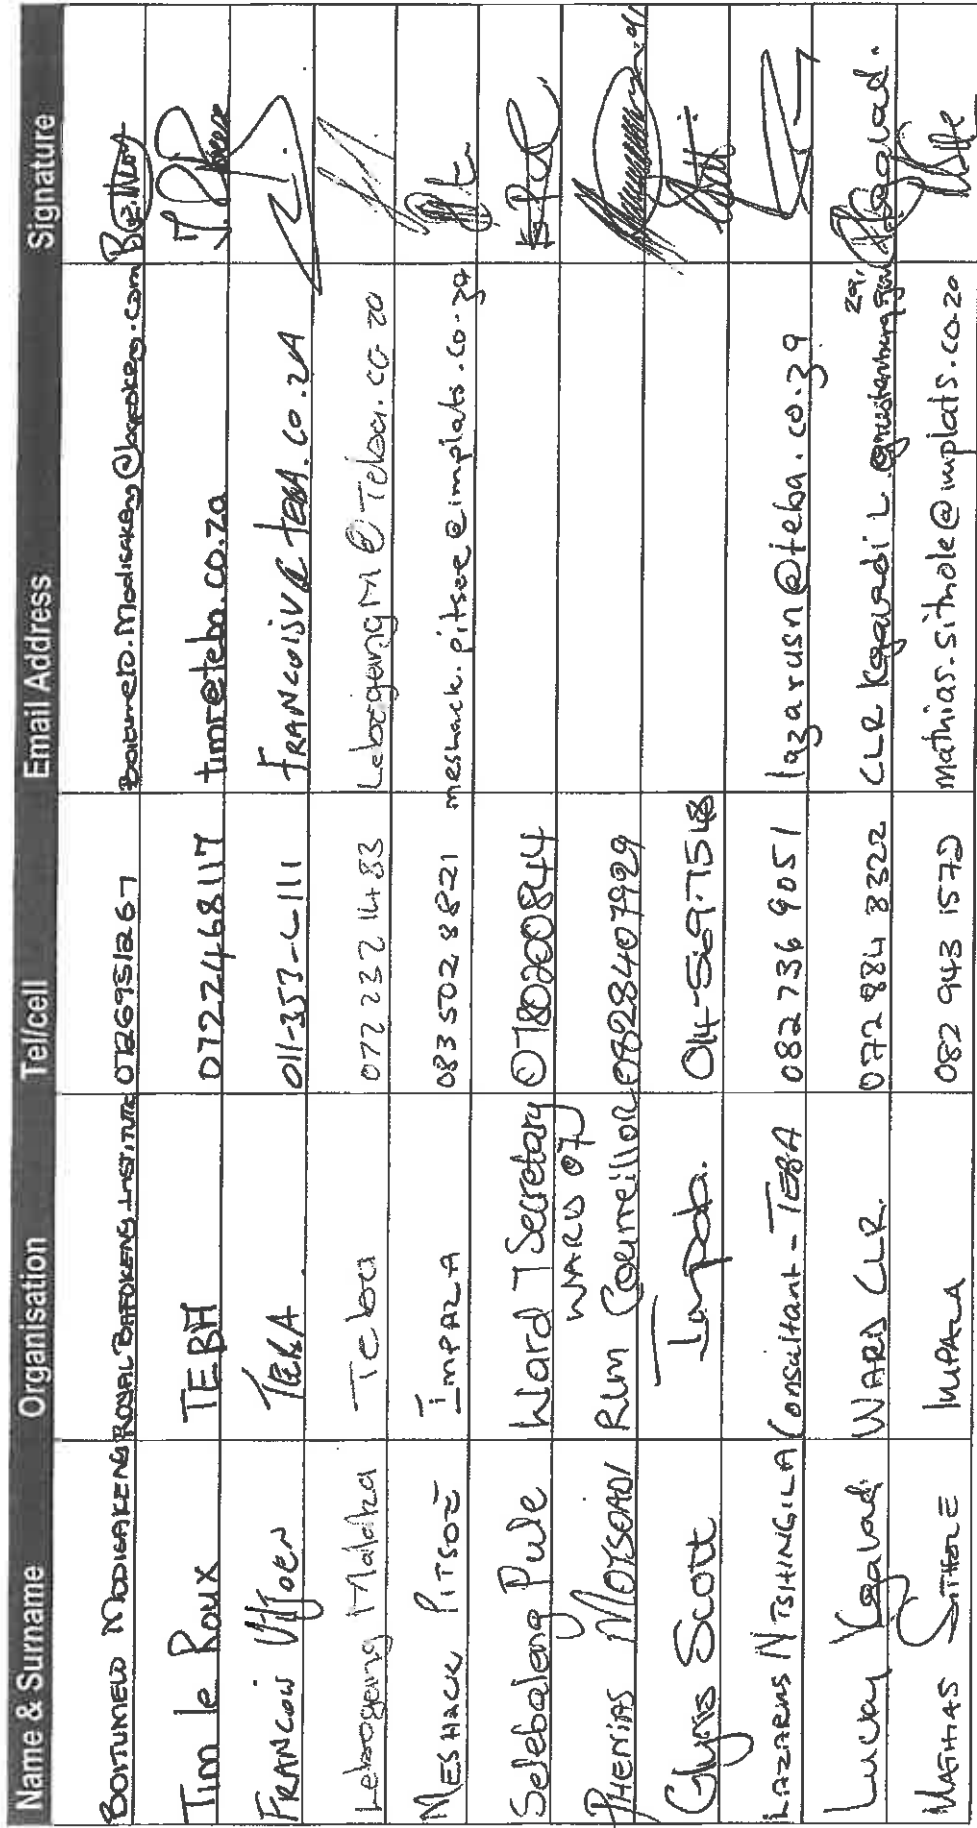 Name & Surname Organisation Tel/cell Email Address Signature
BOITUMELO MODISAKENG ROYAL BAFOKENG INSTITUTE 0726951267 Boitumelo.Modisakeng@bafokeng.com
Tim le Roux TEBA 0722468117 timr@teba.co.za
FRANCOIS VILJOEN TEBA 011-353- FRANCOISV@TEBA.CO.ZA
Lebogang Malaka Teba 072 232 1483 LebogangM@Teba.co.za
MESHACK PITSOE IMPALA 083 502 8821 meshack.pitsoe@implats.co.za
Selebaleng Pule Ward 7 Secretary 0780200844
WARD 07
PHENIAS MOTSOADI RLM Councillor 0828407929
Glynis Scott Impala.
LAZARUS NTSHINGILA Consultant - TEBA 082 736 9051 lazarusn@teba.co.za
Lucky Kgaladi WARD CLR. 072 884 3322 CLR
MATHIAS SITHOLE IMPALA 082 943 1572 mathias.sithole@implats.co.za